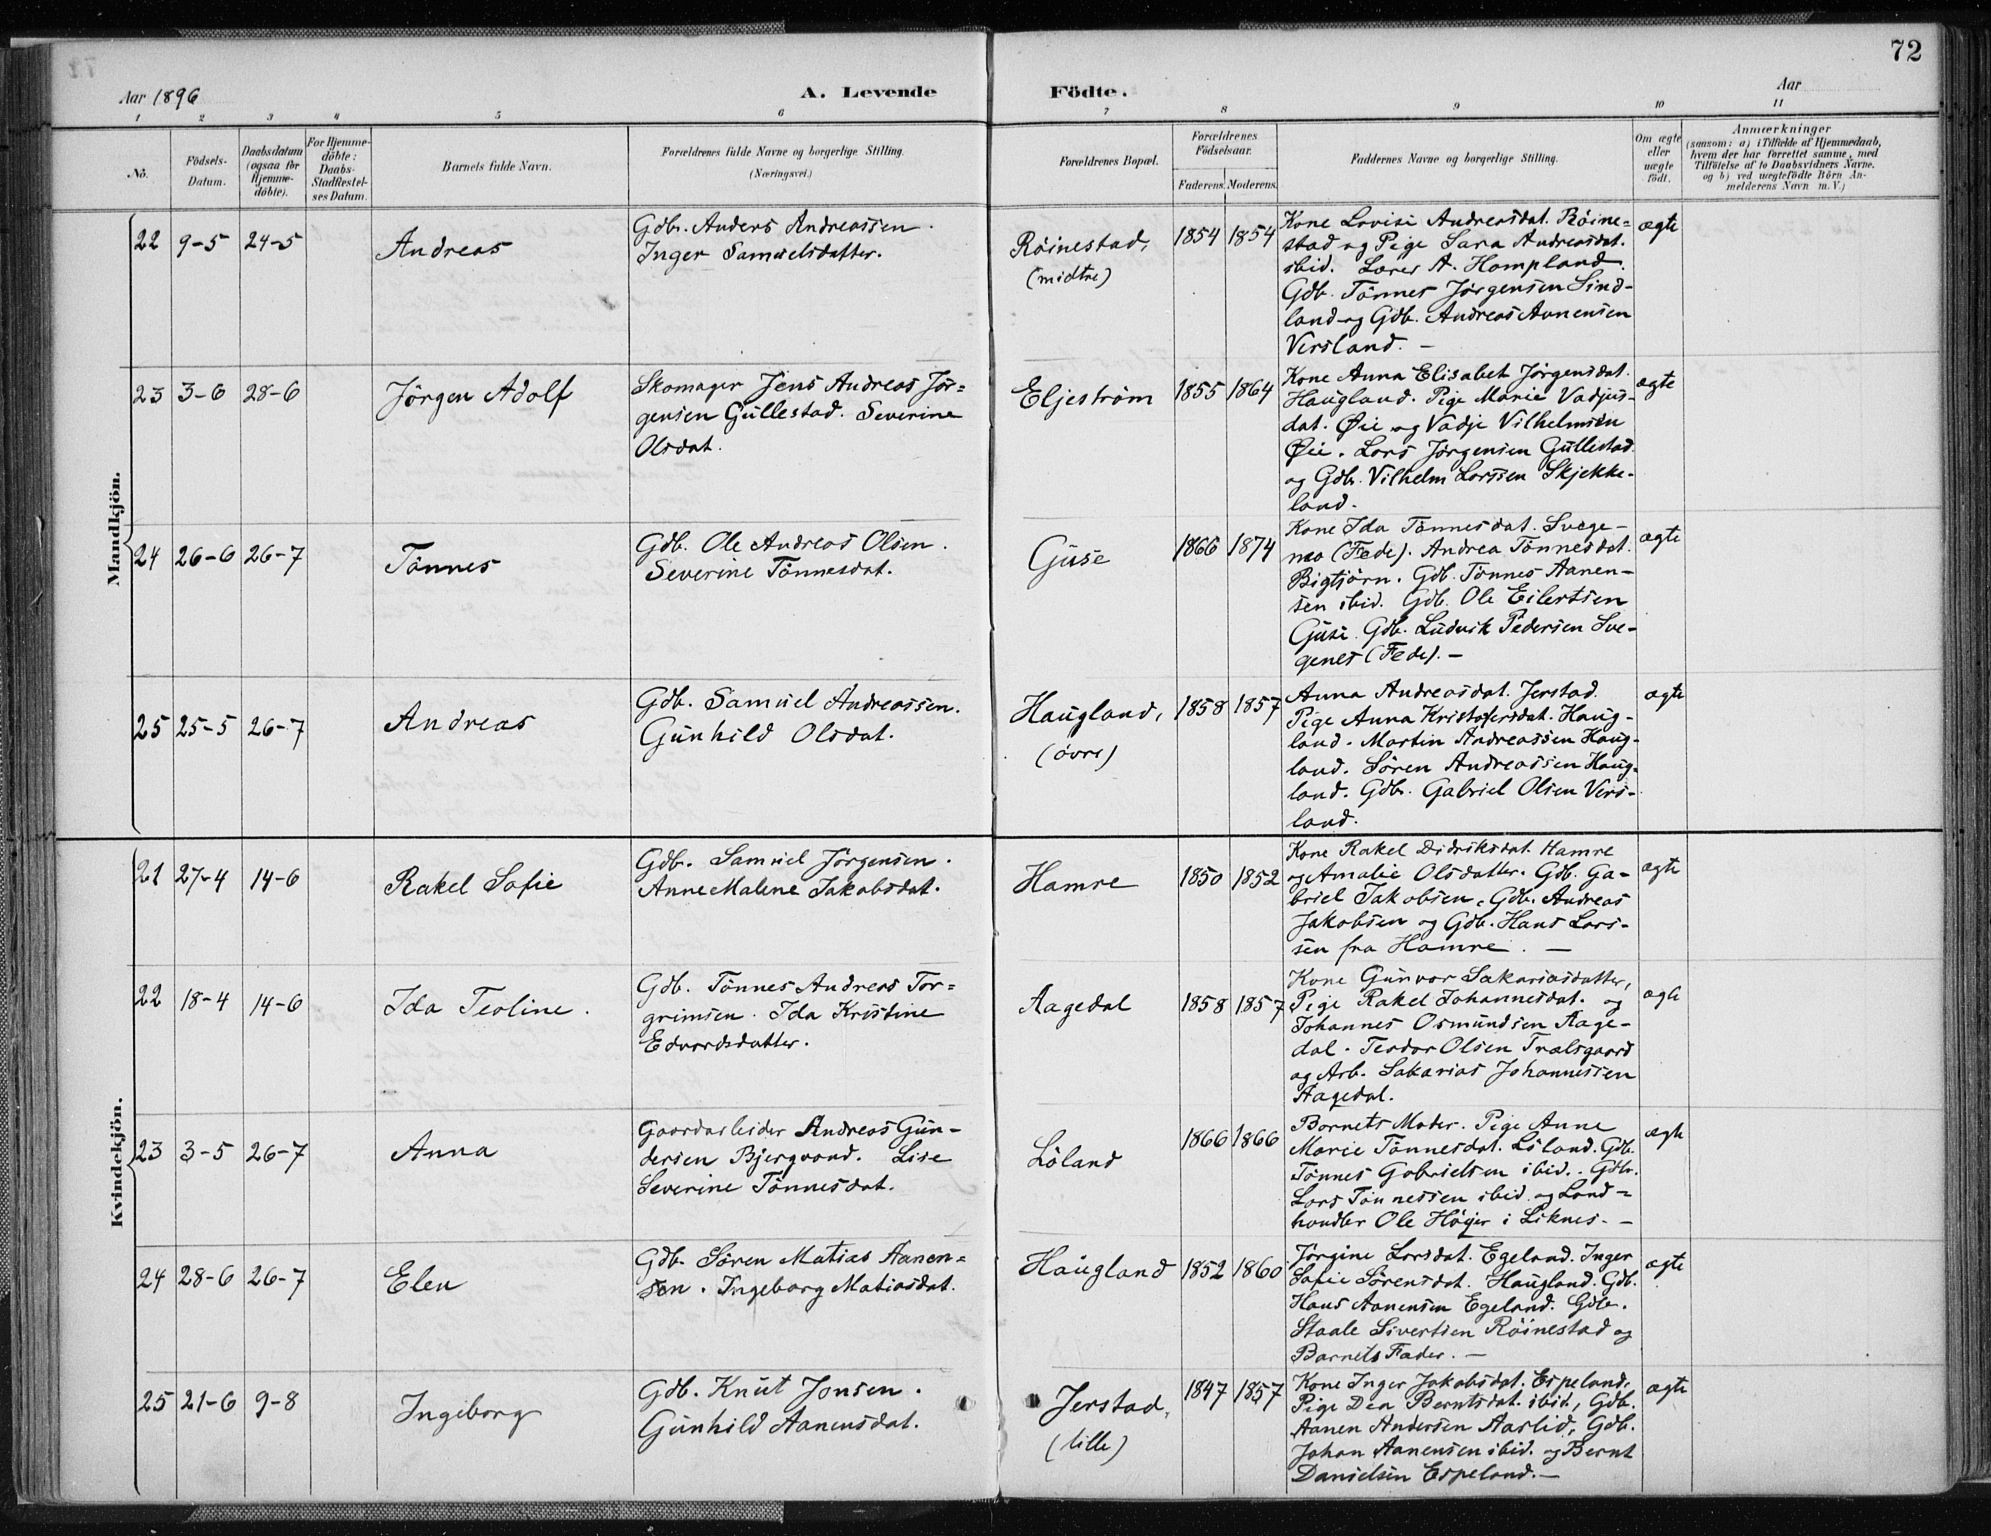 72
Aar 1896
A. Levende Födte.
Aar
1 2 3 4 5 6 7 8 9 10 11
No.
Födsels-Datum.
Daabsdatum (ogsaa for Hjemme-döbte).
For Hjemme-döbte: Daabs-Stadfestel-ses Datum.
Barnets fulde Navn.
Forældrenes fulde Navne og borgerlige Stilling.
(Næringsvei.)
Forældrenes Bopæl.
Forældrenes Födselsaar.
Faderens. Moderens.
Faddernes Navne og borgerlige Stilling.
Om ægte eller uægte födt.
Anmærkninger
(saasom: a) i Tilfælde af Hjemmedaab,
hvem der har forrettet samme, med
Tilföielse af to Daabsvidners Navne,
og b) ved uægtefödte Börn An-
melderens Navn m. V.)
Mandkjön.
22 9-5 24-5 Andreas
Gdb. Anders Andreassen.
Inger Samuelsdatter.
Röinestad,
(midtre)
1854 1854
Kone Lovise Andreasdat. Röine-
stad og Pige Sara Andreasdat.
ibid. Lærer A. Hompland.
Gdb. Tönnes Jörgensen Sind-
land og Gdb. Andreas Aanensen
Versland. —
ægte
23 3-6 28-6 Jörgen Adolf
Skomager Jens Andreas Jör-
gensen Gullestad. Severine
Olsdat.
Eljeström
1855 1864
Kone Anna Elisabet Jörgensdat.
Haugland. Pige Marie Vadjus-
dat. Øie og Vadje Vilhelmsen
Øie. Lars Jörgensen Gullestad
og Gdb. Vilhelm Larssen Skjekke-
land.
ægte
24 26-6 26-7 Tönnes
Gdb. Ole Andreas Olsen.
Severine Tönnesdat.
Guse
1866 1874
Kone Ida Tönnesdat. Svege-
nes (Fede). Andrea Tönnesdat.
Bigtjörn. Gdb. Tönnes Aanen-
sen ibid. Gdb. Ole Eilertsen
Guse. Gdb. Ludvik Pedersen Sve-
genes (Fede). —
ægte
25 25-5 26-7 Andreas
Gdb. Samuel Andreassen.
Gunhild Olsdat.
Haugland,
(övre)
1858 1857
Anna Andreasdat. Jerstad.
Pige Anna Kristofersdat. Haug-
land. Martin Andreassen Haug-
land. Sören Andreassen Haug-
land. Gdb. Gabriel Olsen Vers-
land.
ægte
Kvindekjön.
21 27-4 14-6 Rakel Sofie
Gdb. Samuel Jörgensen.
Anne Malene Jakobsdat.
Hamre
1850 1852
Kone Rakel Didriksdat. Hamre
og Amalie Olsdatter. Gdb. Ga-
briel Jakobsen, Gdb. Andreas
Jakobsen og Gdb. Hans Lars-
sen fra Hamre. —
ægte
22 18-4 14-6 Ida Teoline.
Gdb. Tönnes Andreas Tor-
grimsen. Ida Kristine
Edvardsdatter.
Aagedal
1858 1857
Kone Gunvor Sakariasdatter,
Pige Rakel Johannesdat. og
Johannes Osmundsen Aage-
dal. Teodor Olsen Trælsgaard
og Arb. Sakarias Johannessen
Aagedal.
ægte
23 3-5 26-7 Anna
Gaardarbeider Andreas Gun-
dersen Bjergvand. Lise
Severine Tönnesdat.
Löland
1866 1866
Barnets Moder. Pige Anne
Marie Tönnesdat. Löland. Gdb.
Tönnes Gabrielsen ibid. Gdb.
Lars Tönnessen ibid. og Land-
handler Ole Höyer i Liknes. —
ægte
24 28-6 26-7 Elen
Gdb. Sören Matias Aanen-
sen. Ingeborg Matiasdat.
Haugland
1852 1860
Jörgine Larsdat. Egeland. Inger
Sofie Sörensdat. Haugland. Gdb.
Hans Aanensen Egeland. Gdb.
Staale Sivertsen Röinestad og
Barnets Fader. —
ægte
25 21-6 9-8 Ingeborg
Gdb. Knut Jonsen.
Gunhild Aanensdat.
Jerstad,
(lille)
1847 1857
Kone Inger Jakobsdat. Espeland,
Pige Dea Berntsdat. ibid., Gdb.
Aanen Andersen Aaslid, Gdb.
Johan Aanensen ibid. og Bernt
Danielsen Espeland. —
ægte